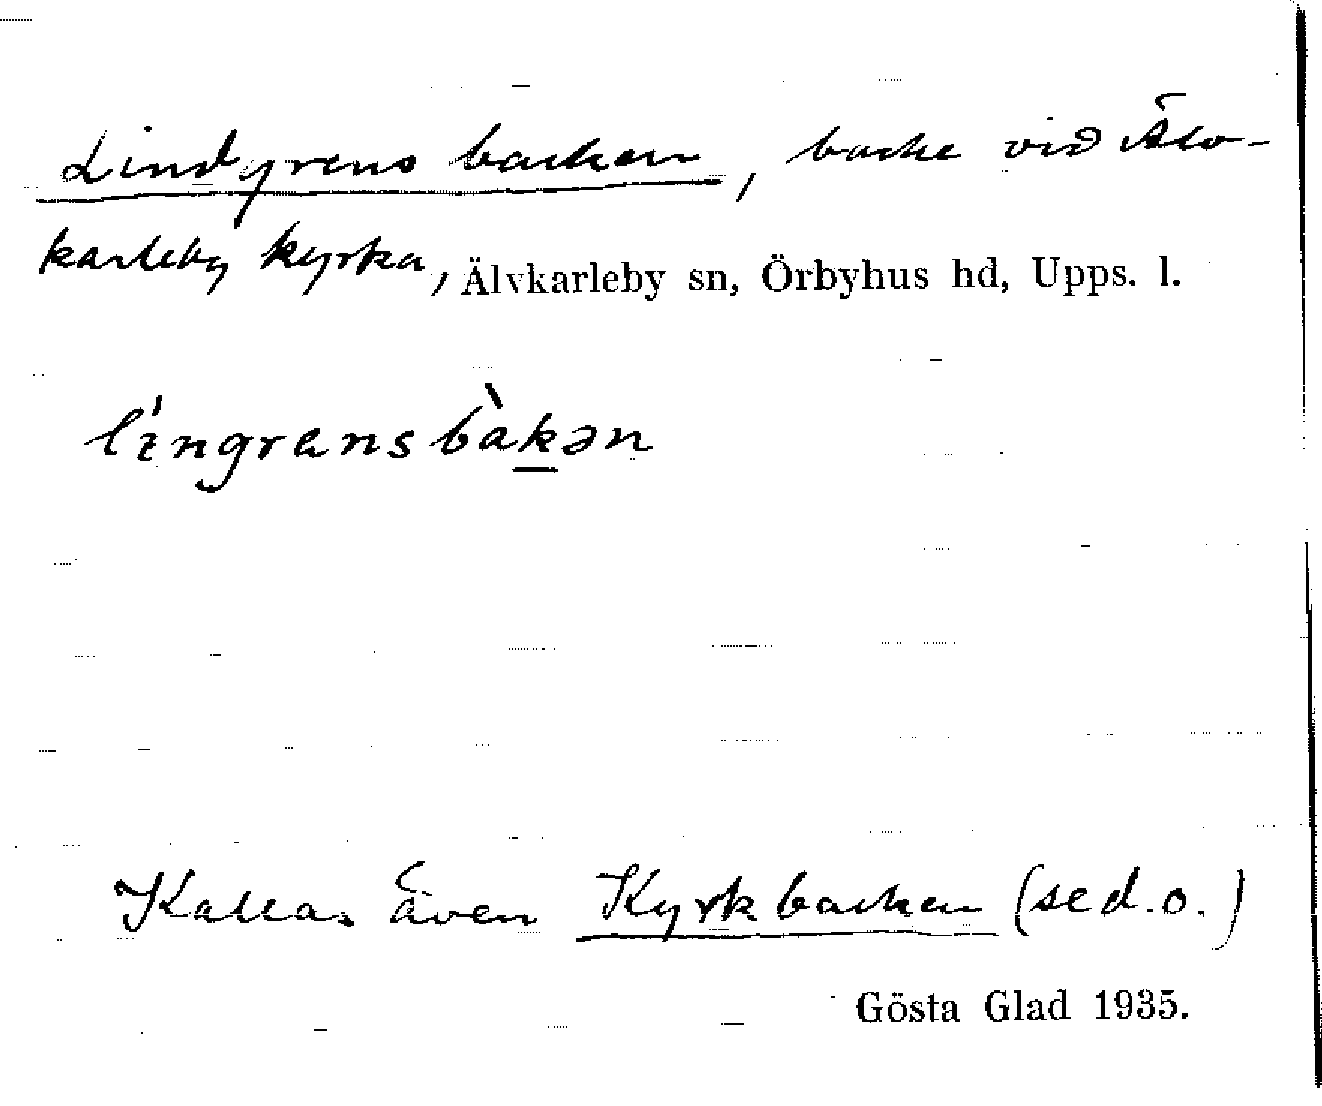 Lindgrens backen, backe vid Älv-
karleby kyrka, Älvkarleby sn, Örbyhus hd, Upps. l.
língrɑnsbàk̲ən
Kallas även Kyrkbacken (se d.o.)
Gösta Glad 1935.